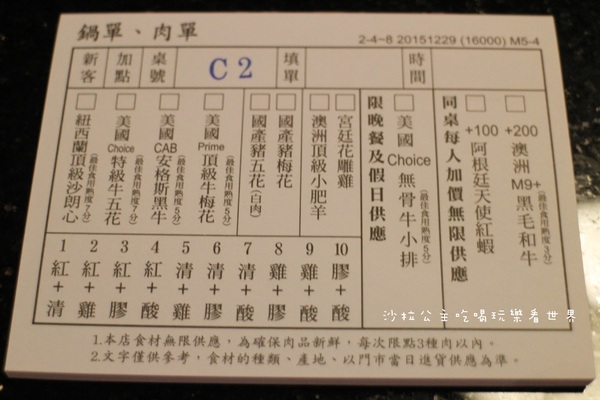 鍋單、肉單
2-4~8 20151229 (16000) M5-4
新客
加點
桌號
C2
填單
時間
紐西蘭頂級沙朗心(最佳食用熟度7分)
美國Choice特級牛五花(最佳食用熟度7分)
美國CAB安格斯黑牛(最佳食用熟度5分)
美國Prime頂級牛梅花(最佳食用熟度5分)
國產豬五花(白肉)
國產豬梅花
澳洲頂級小肥羊
宮廷花雕雞
限晚餐及假日供應
美國Choice無骨牛小排(最佳食用熟度5分)
同桌每人加價無限供應
+100阿根廷天使紅蝦
+200澳洲M9+黑毛和牛(最佳食用熟度3分)
1 2 3 4 5 6 7 8 9 10
紅+清 紅+雞 紅+膠 紅+酸 清+雞 清+膠 清+酸 雞+膠 雞+酸 膠+酸
沙拉公主吃喝玩樂看世界
1.本店食材無限供應，為確保肉品新鮮，每次限點3種肉以內。
2.文字僅供參考，食材的種類、產地、以門市當日進貨供應為準。